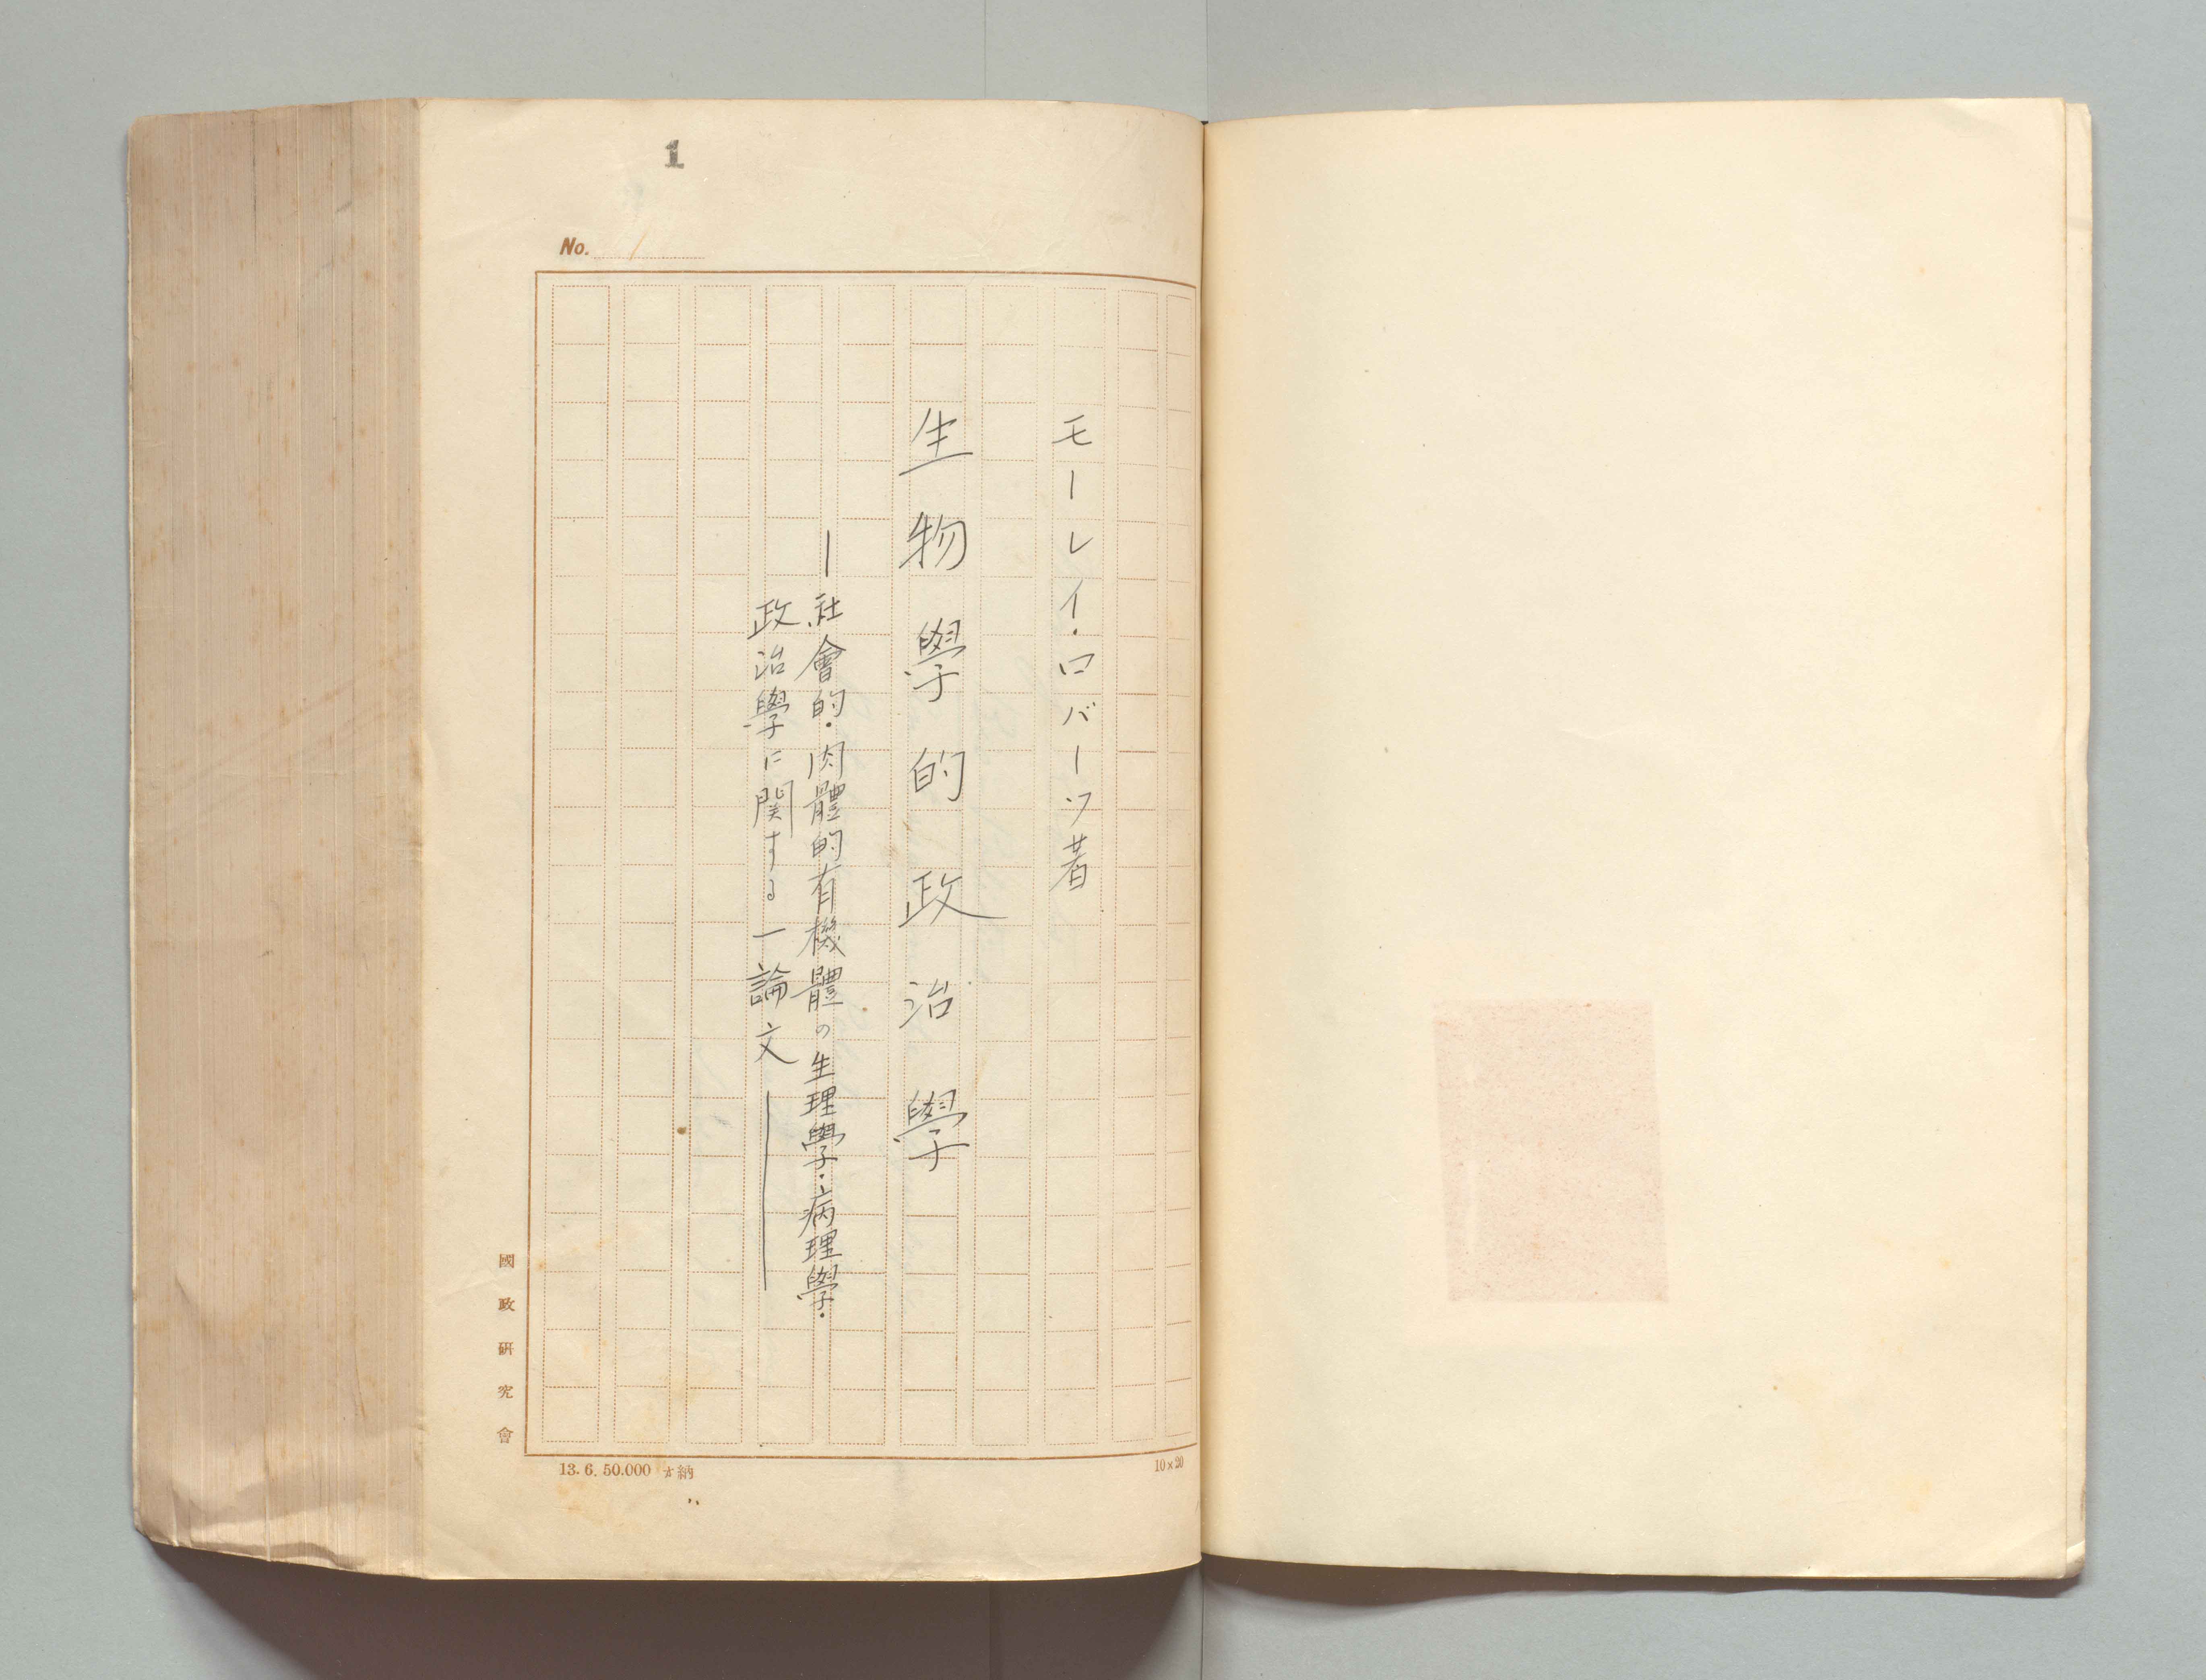 1
No. 1
モーレイ・ロバーツ著
生物學的政治學
―社會的・肉體的有機體の生理學・病理學・
政治學に関する一論文―
國政研究會
13. 6. 50.000 納
10×20